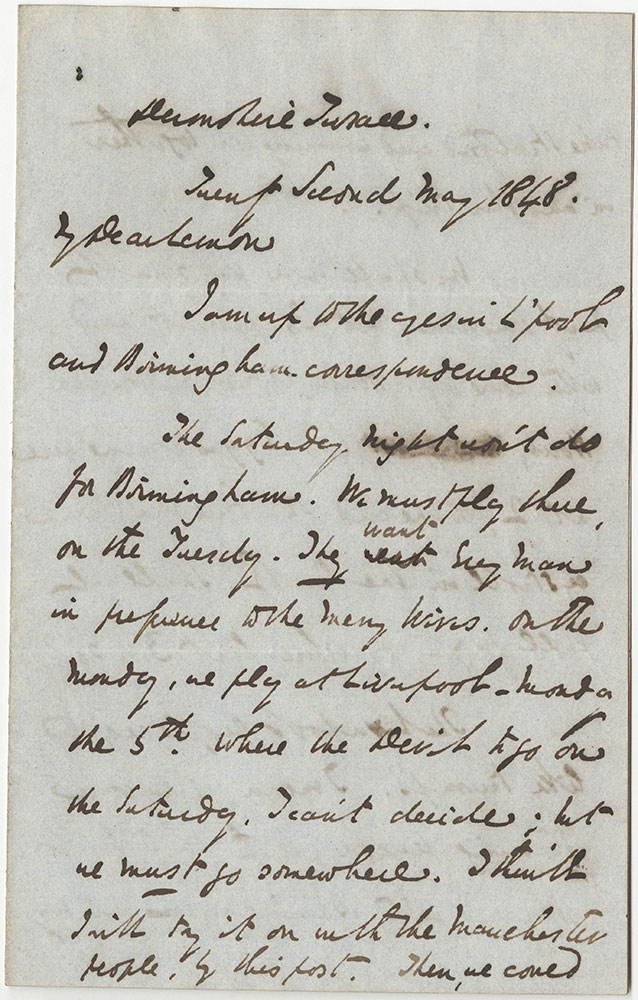 Devonshire Terrace.
Tuesy Second May 1848.
My Dear Lemon
I am up to the eyes in L'pool
and Birmingham correspondence.
The Saturday night won't do
for Birmingham. We must play there,
on the Tuesday. They want Every Man
in preference to the Merry Wives. On the
Monday, we play at Liverpool – Monday
the 5th. Where the Devil to go on
the Saturday, I can't decide; but
we must go somewhere. I think
I will try it on with the Manchester
people, by this post. Then, we could